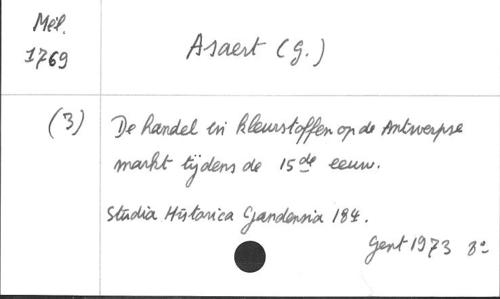 Mél.
1769
Asaert (G.)
(3)
De handel in kleurstoffen op de Antwerpse
markt tijdens de 15de eeuw.
Studia Historica Gandensia 184.
Gent 1973 8º